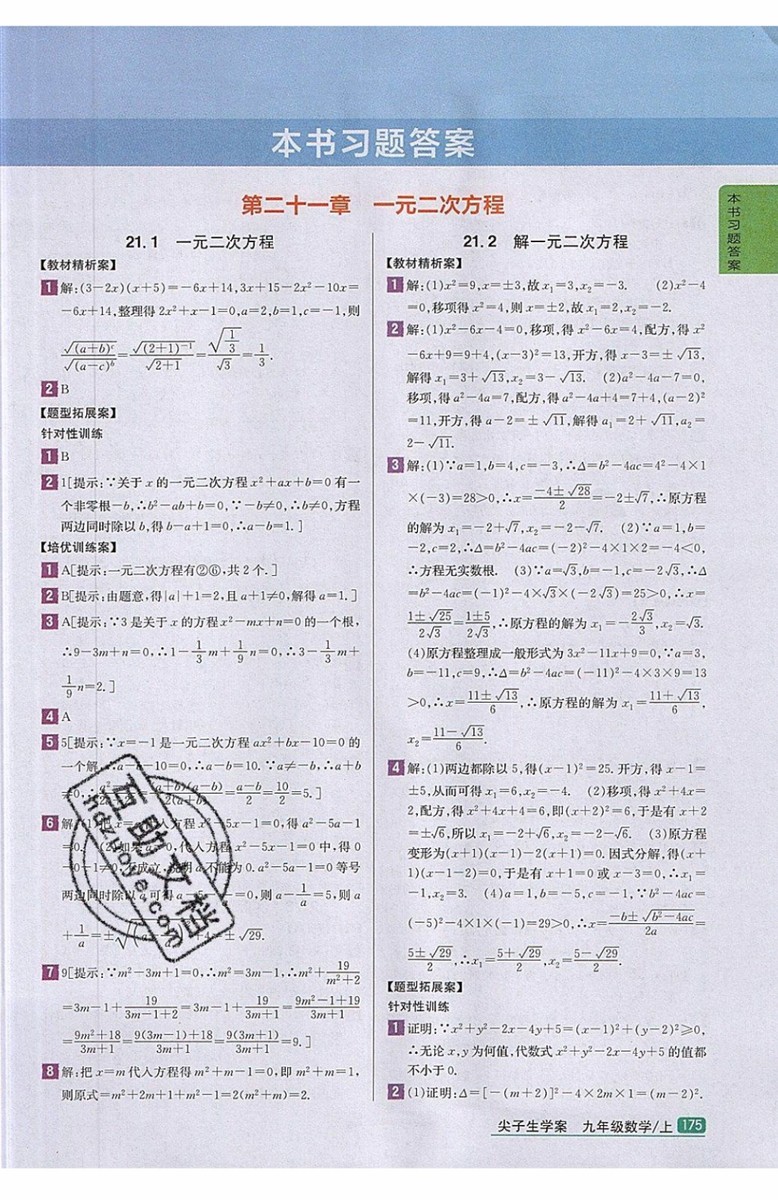 本书习题答案
本书习题答案
第二十一章 一元二次方程
21.1 一元二次方程
【教材精析案】
1 解:(3-2x)(x+5)=-6x+14,3x+15-2x²-10x=
-6x+14,整理得2x²+x-1=0,a=2,b=1,c=-1,则
√((a+b)^c)/√((a-c)^b)=√((2+1)^(-1))/√(2+1)=√(1/3)/√3=1/3.
2 B
【题型拓展案】
针对性训练
1 B
2 1[提示:∵关于x的一元二次方程x²+ax+b=0有一
个非零根-b,∴b²-ab+b=0,∵-b≠0,∴b≠0,方程
两边同时除以b,得b-a+1=0,∴a-b=1.]
【培优训练案】
1 A[提示:一元二次方程有②⑥,共2个.]
2 B[提示:由题意,得|a|+1=2,且a+1≠0,解得a=1.]
3 A[提示:∵3是关于x的方程x²-mx+n=0的一个根,
∴9-3m+n=0,∴1-1/3m+1/9n=0,∴3-1/3m+
1/9n=2.]
4 A
5 5[提示:∵x=-1是一元二次方程ax²+bx-10=0的
一个解,∴a-b-10=0,∴a-b=10.∵a≠-b,∴a+b
=(a-b)/2=10/2=5.]
6 解:(1)把x=a代入方程x²-5x-1=0,得a²-5a-1
=0. (2)如果a=0,代入方程x²-5x-1=0中,得0
-1=0,不成立,说明a不能为0.a²-5a-1=0等号
两边同时除以a,可得a-5-1/a=0,则a-1/a=5,则a
+1/a=±√29.
7 9[提示:∵m²-3m+1=0,∴m²=3m-1,∴m²+19/(m²+2)
=3m-1+19/(3m-1+2)=3m-1+19/(3m+1)=(9m²-1+19)/(3m+1)
=(9m²+18)/(3m+1)=(9(3m-1)+18)/(3m+1)=(9(3m+1))/(3m+1)=9.]
8 解:把x=m代入方程得m²+m-1=0,即m²+m=1,
则原式=m²+2m+1+m²-1=2(m²+m)=2.
21.2 解一元二次方程
【教材精析案】
1 解:(1)x²=9,x=±3,故x₁=3,x₂=-3. (2)x²-4
=0,移项得x²=4,则x=±2,故x₁=2,x₂=-2.
2 解:(1)x²-6x-4=0,移项,得x²-6x=4,配方,得x²
-6x+9=9+4,(x-3)²=13,开方,得x-3=±√13,
解得x₁=3+√13,x₂=3-√13. (2)a²-4a-7=0,
移项,得a²-4a=7,配方,得a²-4a+4=7+4,(a-2)²
=11,开方,得a-2=±√11,解得a₁=2+√11,a₂=
2-√11.
3 解:(1)∵a=1,b=4,c=-3,∴Δ=b²-4ac=4²-4×1
×(-3)=28>0,∴x=(-4±√28)/2=-2±√7,∴原方程
的解为x₁=-2+√7,x₂=-2-√7. (2)∵a=1,b=
-2,c=2,∴Δ=b²-4ac=(-2)²-4×1×2=-4<0,
∴方程无实数根. (3)∵a=√3,b=-1,c=-2√3,∴Δ
=b²-4ac=(-1)²-4×√3×(-2√3)=25>0,∴x=
(1±√25)/(2√3)=(1±5)/(2√3),∴原方程的解为x₁=-2√3/3,x₂=√3.
(4)原方程整理成一般形式为3x²-11x+9=0,∵a=3,
b=-11,c=9,∴Δ=b²-4ac=(-11)²-4×3×9=13
>0,∴x=(11±√13)/6,∴原方程的解为x₁=(11+√13)/6,
x₂=(11-√13)/6.
4 解:(1)两边都除以5,得(x-1)²=25.开方,得x-1=
±5,从而可得x₁=6,x₂=-4. (2)移项,得x²+4x=
2,配方,得x²+4x+4=6,即(x+2)²=6,于是有x+2
=±√6,所以x₁=-2+√6,x₂=-2-√6. (3)原方程
变形为(x+1)(x-1)-2(x+1)=0.因式分解,得(x+
1)(x-1-2)=0,于是有x+1=0或x-3=0,∴x₁=
-1,x₂=3. (4)a=1,b=-5,c=-1,∵b²-4ac=
(-5)²-4×1×(-1)=29>0,∴x=(-b±√(b²-4ac))/2a=
(5±√29)/2,∴x₁=(5+√29)/2,x₂=(5-√29)/2.
【题型拓展案】
针对性训练
1 证明:∵x²+y²-2x-4y+5=(x-1)²+(y-2)²≥0,
∴无论x,y为何值,代数式x²+y²-2x-4y+5的值都
不小于0.
2 (1)证明:Δ=[-(m+2)]²-4×2m×1=(m-2)².
互助文档
hdzuoye.com
尖子生学案 九年级数学/上 175